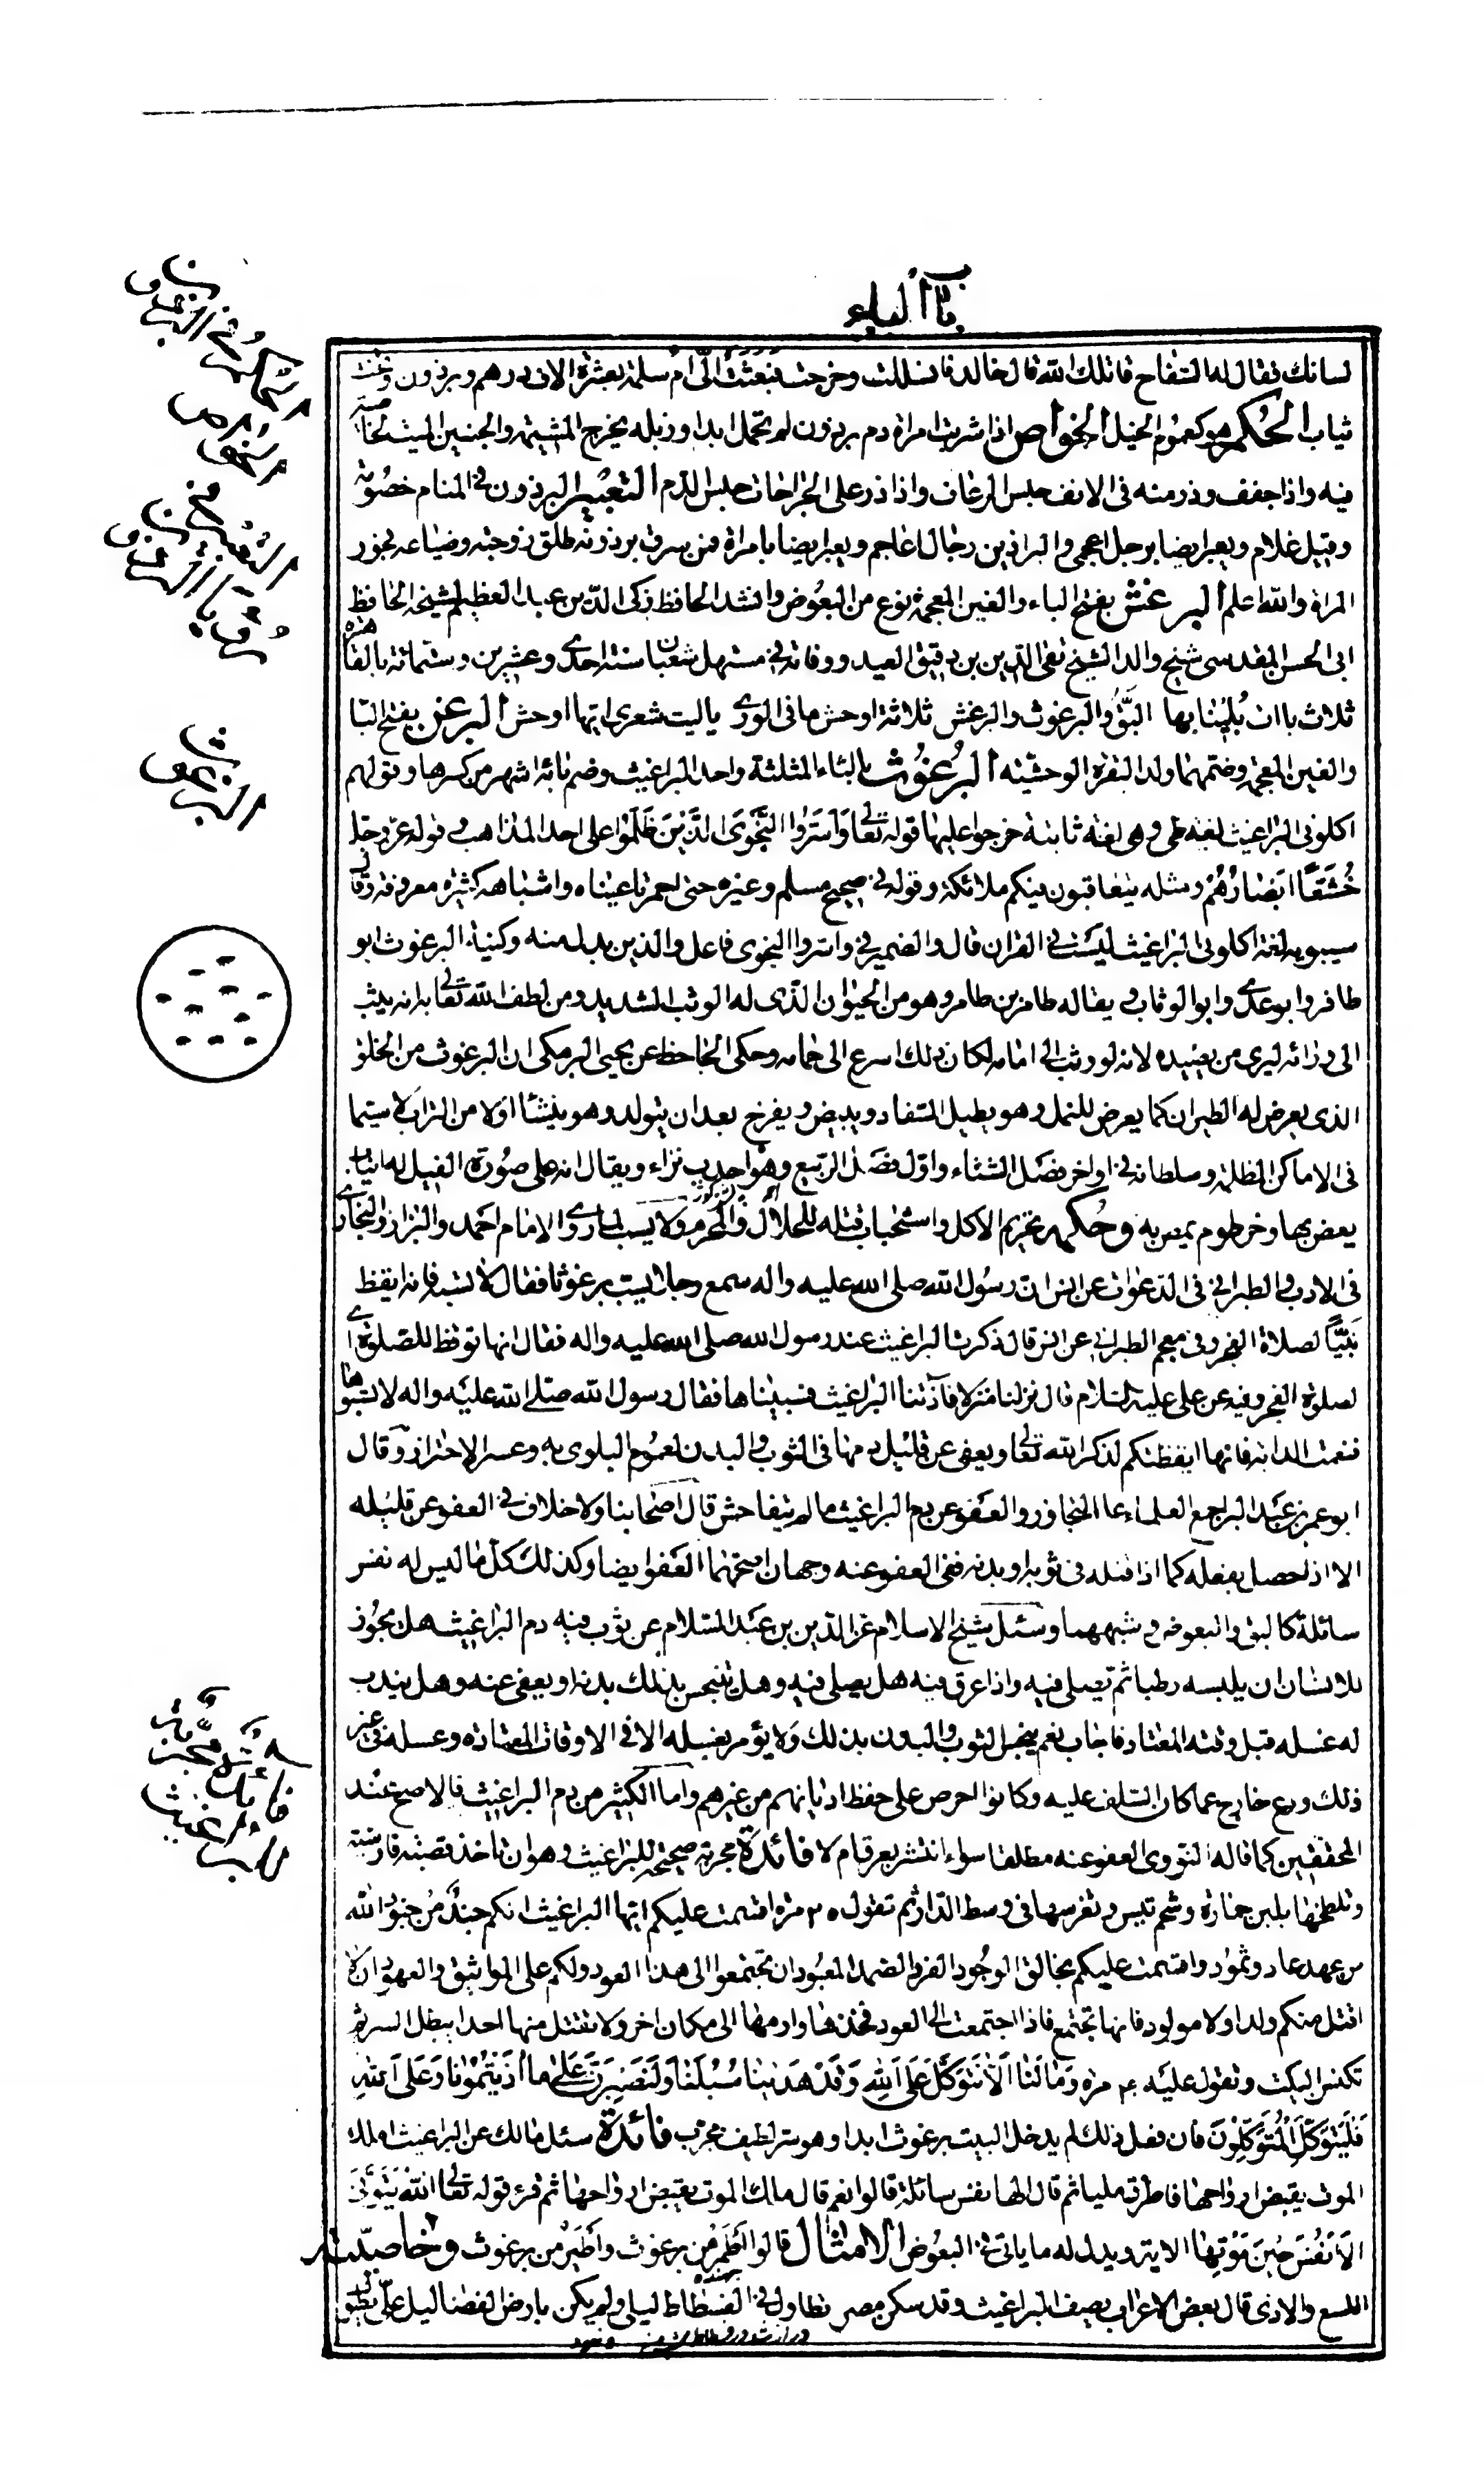 باب الباء
لسانك فقال له السفاح قاتلك الله قال خالد فانسللت وخرجت فبعثت الىّ ام سلمة بعشرة الاف درهم وبرذون وتخت
ثياب الحكم هو كعموم الخيل الخواص اذا شربت امراة دم برذون لم تحمل ابدا وزبله يخرج المشيمة والجنين الميت لخاصية
فيه واذا جفف وذر منه فى الانف حبس الرعاف واذا ذر على الجراحات حبس الدم التعبير البرذون فى المنام خصومة
وقيل غلام ويعبر ايضا برجل اعجمى والبراذين رجال اعاجم ويعبر ايضا بامراة فمن سرق برذونه طلق زوجته وضياعه فجور
المراة والله اعلم البرغش بفتح الباء والغين المعجمة نوع من البعوض وانشد الحافظ زكى الدين عبد العظيم لشيخه الحافظ
ابى الحسن المقدسى شيخ والد الشيخ تقى الدين بن دقيق العيد ووفاته فى مستهل شعبان سنة احدى وعشرين وستمائة بالقاهره
ثلاث باات بُلينا بها البَقُّ والبرغوث والبرغش ثلاثة اوحش ما فى الورى ياليت شعرى ايها اوحش البرغن بفتح البا
والغين المعجمة وضمهما ولد البقرة الوحشيه البُرغُوث بالثاء المثلثة واحد البراغيث وضم بائه اشهر من كسرها وقولهم
اكلونى البراغيث لغة طى وهى لغة ثابتة خرجوا عليها قوله تعالى وَاَسَرُّوا النَّجْوَى الَّذِينَ ظَلَمُوا على احد المذاهب وقوله عز وجل
خُشَّعًا اَبْصَارُهُمْ ومثله يتعاقبون فيكم ملائكة وقوله فى صحيح مسلم وغيره حتى احمرتا عيناه واشباهه كثيرة معروفة وقال
سيبويه لغة اكلونى البراغيث ليست فى القران قال والضمير فى واسروا النجوى فاعل والذين بدل منه وكنية البرغوث ابو
طافر وابو عدى وابو الوثاب ويقال له طامر بن طامر وهو من الحيوان الذى له الوثب الشديد ومن لطف الله تعالى به انه يثب
الى ورائه ليرى من يصيده لانه لو وثب الى امامه لكان ذلك اسرع الى حمامه وحكى الجاحظ عن يحيى البرمكى ان البرغوث من الخلق
الذى يعرض له الطيران كما يعرض للنمل وهو يطيل السفاد ويبيض ويفرخ بعد ان يتولد وهو ينشا اولا من التراب لا سيما
فى الاماكن المظلمة وسلطانه فى اواخر فصل الشتاء واول فصل الربيع وهو احدب نزاء ويقال انه على صورة الفيل له انياب
يعض بها وخرطوم يمص به وحكمه تحريم الاكل واستحباب قتله للحلال والمحرم ولا يسب لما روى الامام احمد والبزار والبخارى
فى الادب والطبرانى فى الدعوات عن انس ان رسول الله صلى الله عليه واله سمع رجلا يسب برغوثا فقال لا تسبه فانه ايقظ
نَبِيًّا لصلاة الفجر وفى معجم الطبرانى عن انس قال ذكرت البراغيث عند رسول الله صلى الله عليه واله فقال انها توقظ للصلوة اى
لصلوة الفجر وفيه عن على عليه السلام قال نزلنا منزلا فآذتنا البراغيث فسببناها فقال رسول الله صلى الله عليه واله لا تسبوها
فنعمت الدابة فانها ايقظتكم لذكر الله تعالى ويعفى عن قليل دمها فى الثوب والبدن لعموم البلوى به وعسر الاحتراز وقال
ابو عمر بن عبد البر اجمع العلماء على التجاوز والعفو عن دم البراغيث ما لم يتفاحش قال اصحابنا ولا خلاف فى العفو عن قليله
الا اذا حصل بفعله كما اذا قتله فى ثوبه او بدنه ففى العفو عنه وجهان اصحهما العفو ايضا وكذلك كل ما ليس له نفس
سائلة كالبق والبعوض وشبههما وسئل شيخ الاسلام عز الدين بن عبد السلام عن ثوب فيه دم البراغيث هل يجوز
للانسان ان يلبسه رطبا ثم يصلى فيه واذا عرق فيه هل يصلى فيه وهل يتنجس بذلك بدنه او يعفى عنه وهل يندب
له غسله قبل وقته المعتاد فاجاب نعم ينجس الثوب والبدن بذلك ولا يؤمر بغسله الا فى الاوقات المعتادة وغسله فى غير
ذلك ورع خارج عما كان السلف عليه وكانوا احرص على حفظ اديانهم من غيرهم واما الكثير من دم البراغيث فالاصح عند
المحققين كما قاله النووى العفو عنه مطلقا سواء انتشر بعرق ام لا فائدة مجربة صحيحة للبراغيث وهو ان تاخذ قصبة فارسية
وتلطخها بلبن حمارة وشحم تيس وتغرسها فى وسط الدار ثم تقول ٢٥ مرة اقسمت عليكم ايها البراغيث انكم جند من جنود الله
من عهد عاد وثمود واقسمت عليكم بخالق الوجود الفرد الصمد المعبود ان تجتمعوا الى هذا العود ولكم على المواثيق والعهود ان لا
اقتل منكم ولدا ولا مولود فانها تجتمع فاذا اجتمعت الى العود فخذها وارمها الى مكان اخر ولا تقتل منها احدا يبطل السر ثم
تكنس البيت وتقول عليه ٤٠ مره وَمَا لَنَا اَلَّا نَتَوَكَّلَ عَلَى اللهِ وَقَدْ هَدَينَا سُبُلَنَا وَلَنَصْبِرَنَّ عَلَى مَا اذَيْتُمُونَا وَعَلَى اللهِ
فَلْيَتَوَكَّلِ الْمُتَوَكِّلُونَ فان فعل ذلك لم يدخل البيت برغوث ابدا وهو سر لطيف مجرب فائدة سئل مالك عن البراغيث املك
الموت يقبض ارواحها فاطرق مليا ثم قال الها نفس سائلة قالوا نعم قال ملك الموت يقبض ارواحها ثم قرء قوله تعالى الله يَتَوَفَّى
الْاَنْفُسَ حِينَ مَوْتِهَا الاية ويدل له ما ياتى فى البعوض الامثال قالوا اطمر من برغوث واطير من برغوث وخاصيته
اللسع والاذى قال بعض الاعراب يصف البراغيث وقد سكن مصر تطاول فى الفسطاط ليلى ولم يكن بارض الفضا ليل علىّ يطول
الحكم فى البرذون
الخواص
التعبير فى
رؤيا البرذون
البرغوث
فائدة مجربة
البراغيث